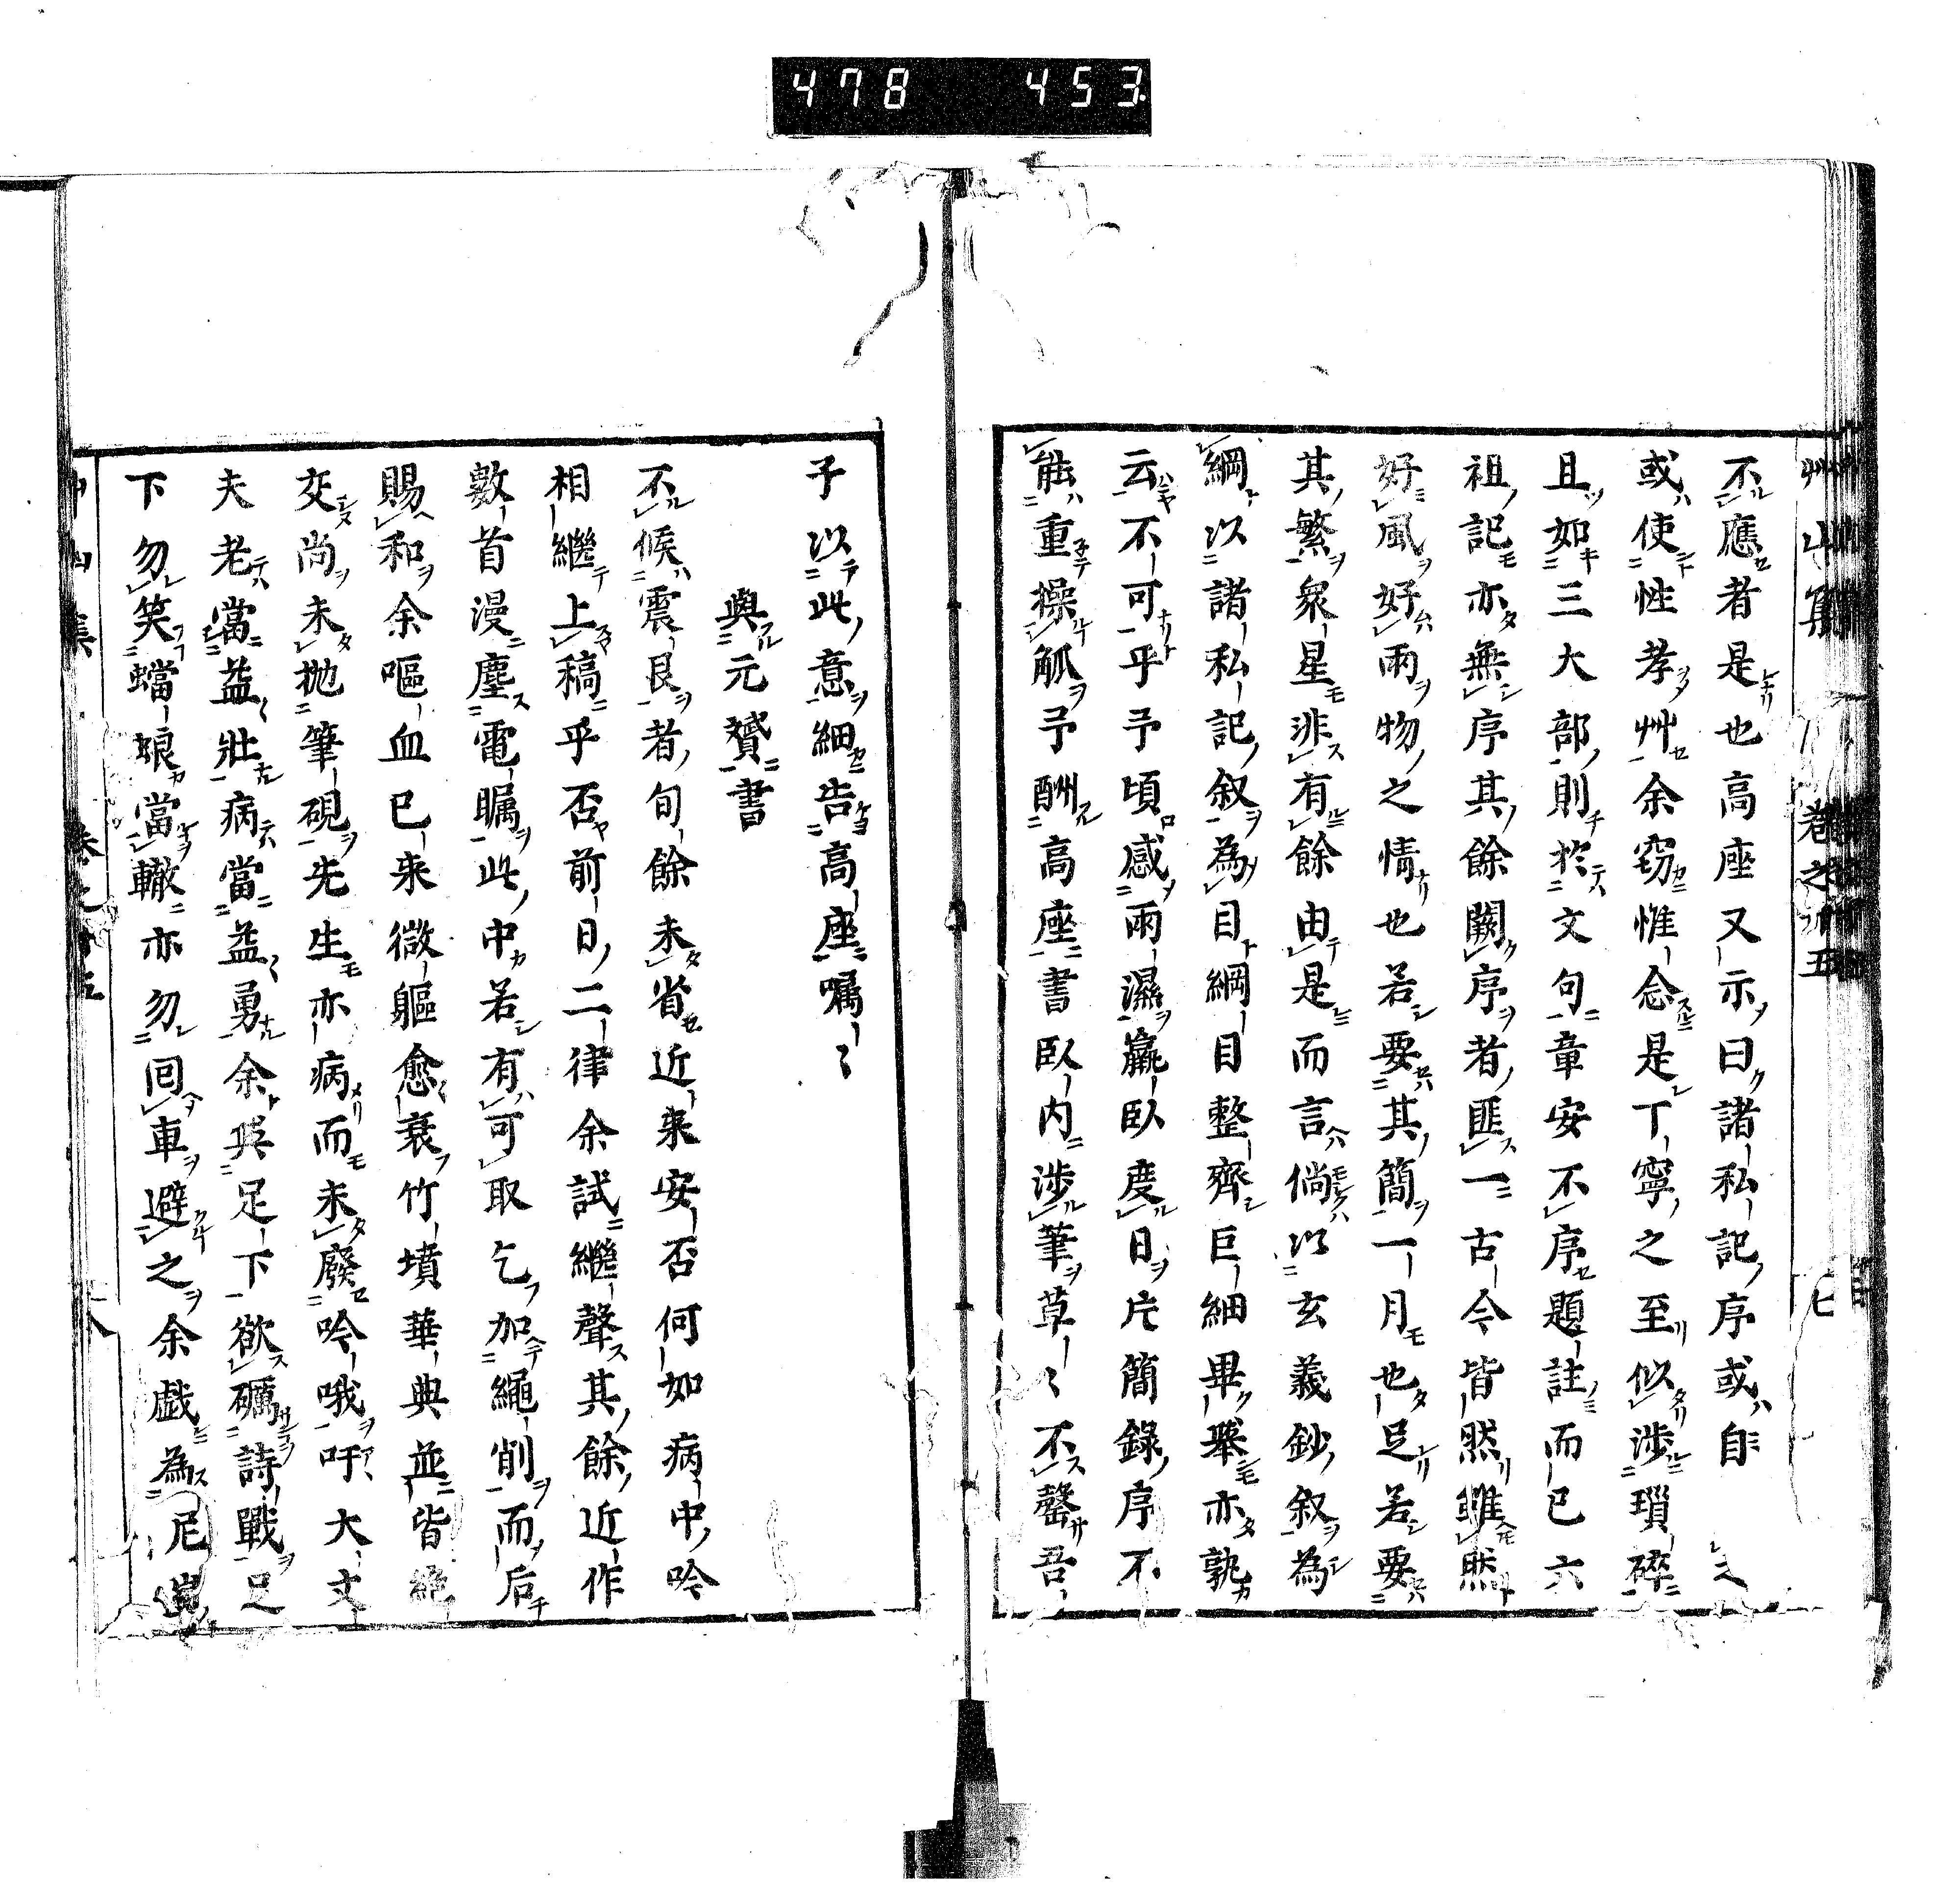 478 453
艸山集 卷之 五 七
不應者是也高座又示曰諸私記序或自
或使性孝艸余窃惟念是丁寧之至似涉瑣碎
且如三大部則於文句章安不序題註而已六
祖記亦無序其餘闕序者匪一古今皆然雖然
好風好雨物之情也若要其簡一月也足若要
其繁衆星非有餘由是而言倘以玄義鈔叙為
綱以諸私記叙為目綱目整齊巨細畢舉亦孰
云不可乎予頃感雨濕羸臥度日片簡錄序不
能重操觚予酬高座書臥内涉筆草〻不罄吾
子以此意細告高座囑〻
與元贇書
不候震艮者旬餘未省近来安否何如病中吟
相繼上稿乎否前日二律余試繼聲其餘近作
數首漫塵電矚此中若有可取乞加繩削而后
賜和余嘔血已来微軀愈衰竹墳華典並皆絶
交尚未抛筆硯先生亦病而未廢吟哦吁大丈
夫老當益壯病當益勇余與足下欲礪詩戰足
下勿笑蟷蜋當轍亦勿回車避之余戯為尼